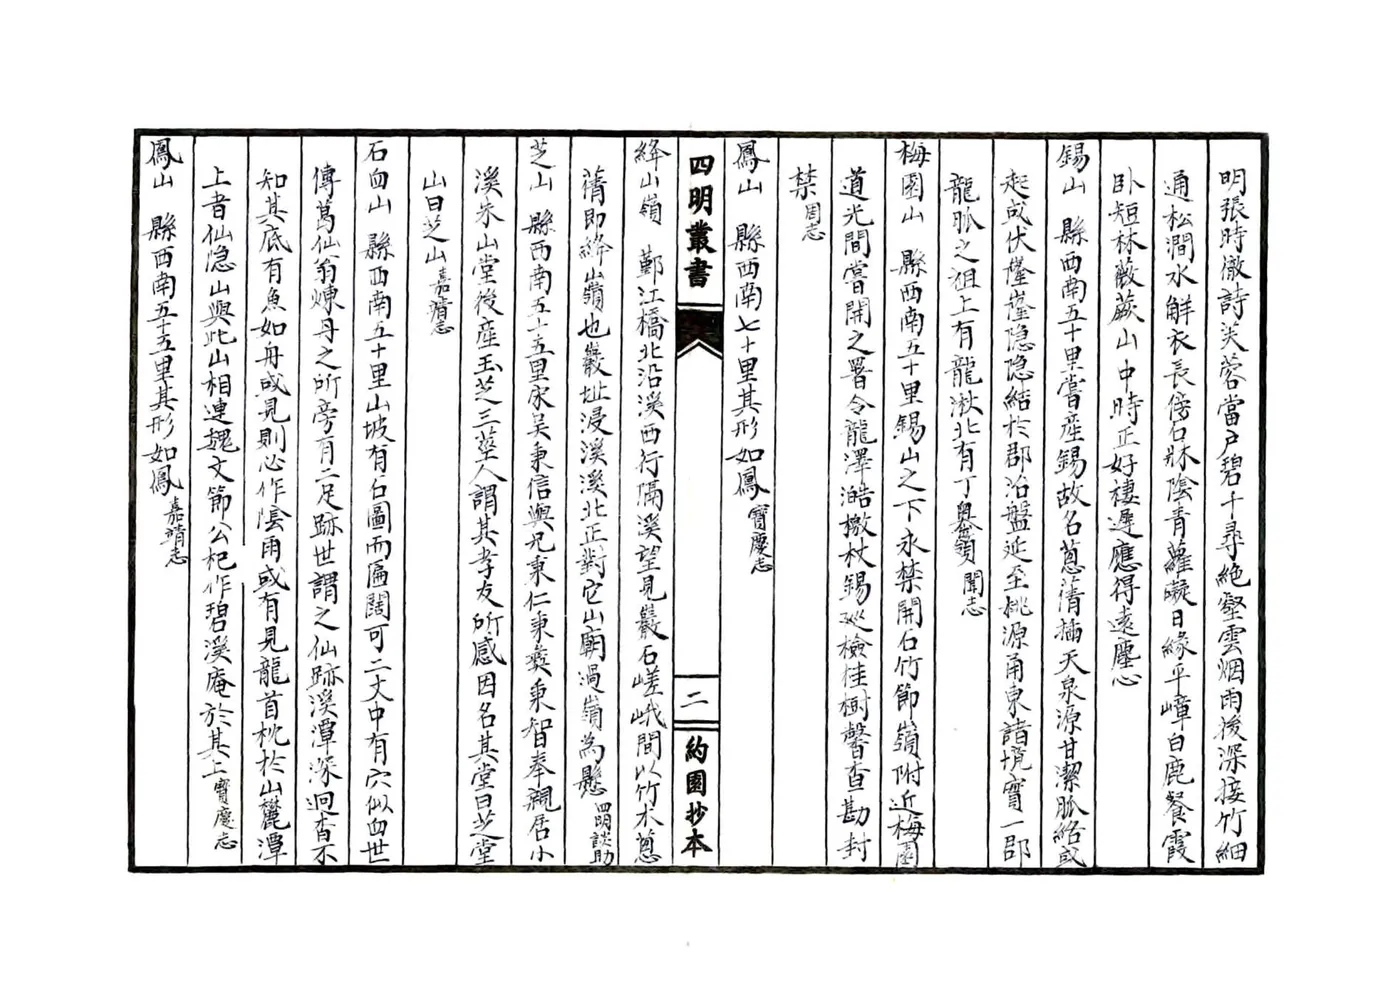 明張時徹詩芙蓉當戶碧千尋絶壑雲烟雨後深接竹細
通松澗水解衣長傍石牀陰青蘿礙日緣平嶂白鹿餐霞
卧短林薇蕨山中時正好棲遲應得遠塵心
錫山 縣西南五十里嘗産錫故名蔥蒨插天泉源甘潔脉絡或
起或伏隆隆隱隱結於郡治盤延至姚源甬東諸境實一郡
龍脈之祖上有龍湫北有丁嶴嶺聞志
梅園山 縣西南五十里錫山之下永禁開石竹節嶺附近梅園
道光間嘗開之署令龍澤澔檄杖錫巡檢桂樹馨查勘封
禁周志
鳳山 縣西南七十里其形如鳳寶慶志
四明叢書
二
約園抄本
絳山嶺 鄞江橋北沿溪西行隔溪望見巖石嵯峨間以竹木蔥
蒨即絳山嶺也巖址浸溪溪北正對它山廟過嶺為懸四明談助
芝山 縣西南五十五里宋吳秉信與兄秉仁秉彝秉智奉親居小
溪朱山堂後産玉芝三莖人謂其孝友所感因名其堂曰芝堂
山曰芝山嘉靖志
石臼山 縣西南五十里山坡有石圓而匾闊可二丈中有穴似臼世
傳葛仙翁煉丹之所旁有二足跡世謂之仙跡溪潭深迥杳不
知其底有魚如舟或見則必作陰雨或有見龍首枕於山麓潭
上者仙隱山與此山相連魏文節公杞作碧溪庵於其上寶慶志
鳳山 縣西南五十五里其形如鳳嘉靖志